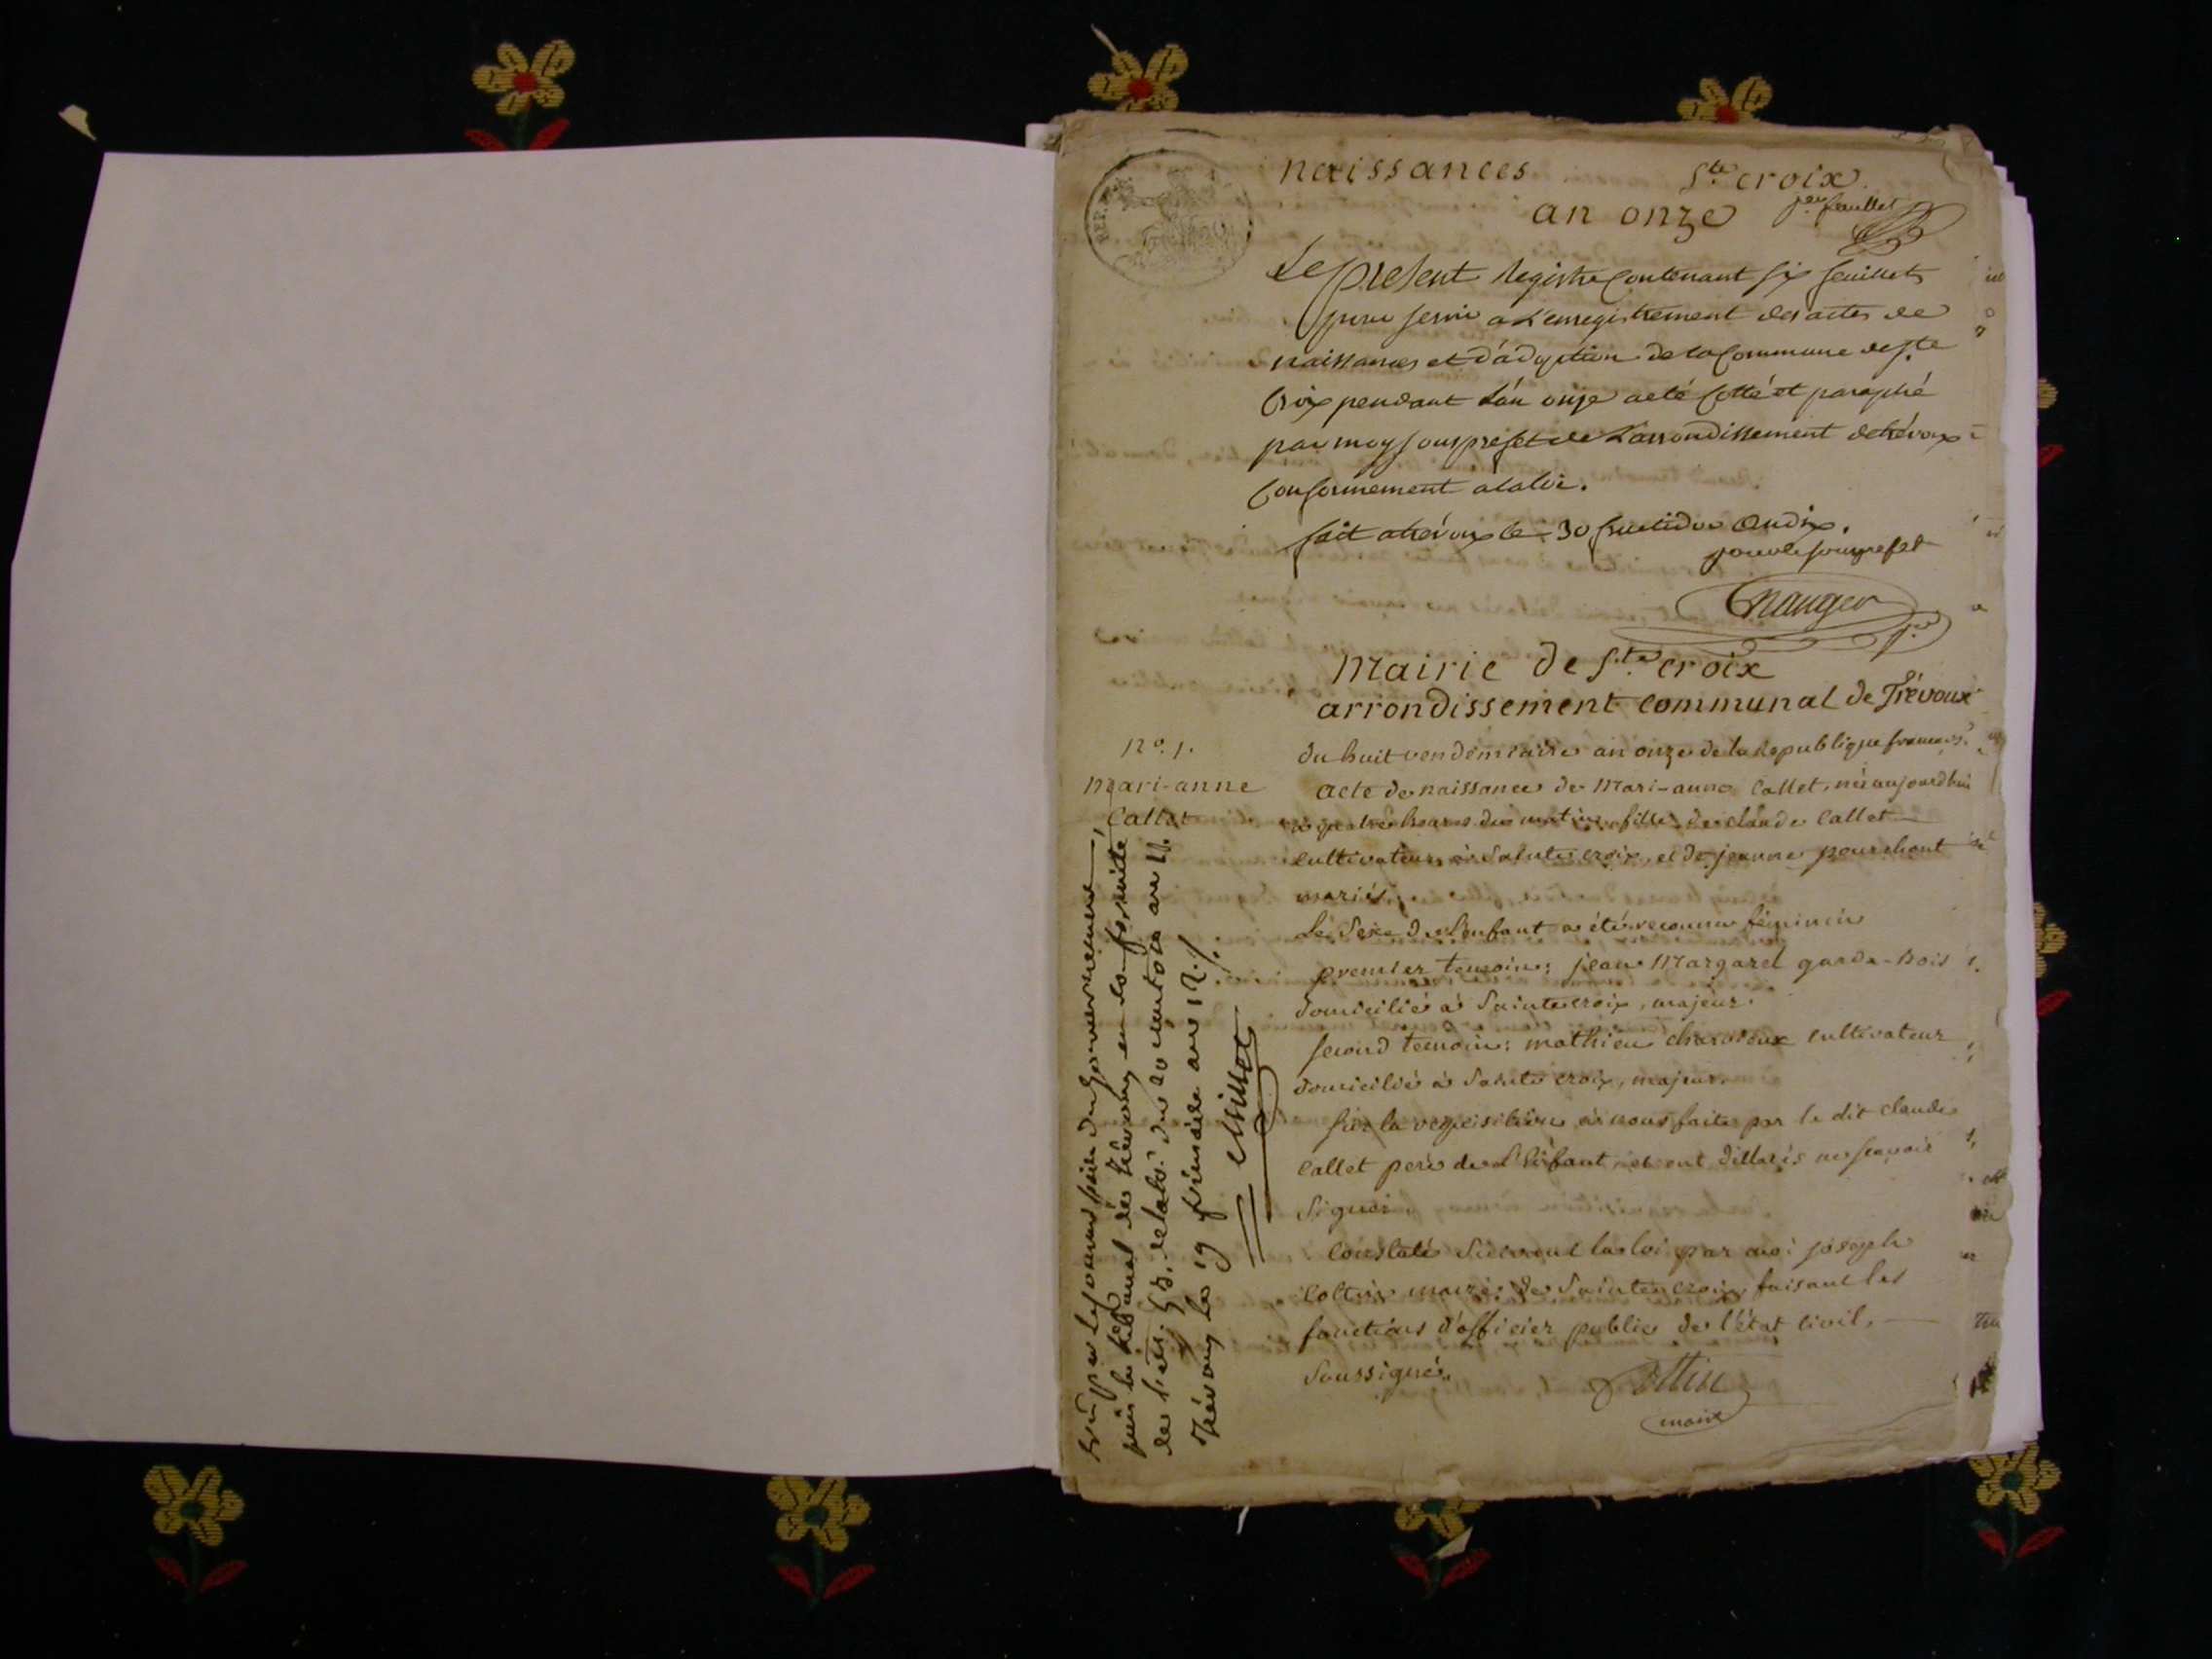 naissances Ste croix
an onze 1er feuillet
Le présent Registre Contenant six feuillets
pour servir a L'enregistrement des actes de
naissances et d'adoption de la Commune de Ste
Croix pendant L'an onze a eté Cotté et paraphé
par moy sous prefet de L'arrondissement de trévoux
Conformement a la loi.
fait a trévoux le 30 fructidor an dix.
pour le sous prefet
mairie de Ste croix
arrondissement communal de Trévoux
no. 1.
Mari-anne
Callet
du huit vendémiaire an onze de la Republique francais.
acte de naissance de Mari-anne Callet, née aujourdhui
à quatre heures du matin, fille de claude Callet
cultivateur à Sainte croix, et de jeanne pourchout
mariés.
Le Sexe de L'enfant a été reconnu féminin
premier temoin: jean Margarel garde-bois
domicilié à Sainte croix, majeur.
second temoin: mathieu cultivateur
domicilié à Sainte croix, majeur.
Sur la requisition à nous faite par le dit claude
Callet père de L'Enfant, et ont dillarés ne scavoir
Signer.
Constaté Suivant la loi par moi joseph
Cottin maire de Sainte Croix, faisant les
fonctions d'officier public de l'état Civil,
Soussigné.
Cottin
maire
Vu par le Commissaire du Gouvernement
près le tribunal de Trévoux en conformité
de l'art. de l'ar. du 20 ventose an 11.
Trévoux le 19 frimaire an 12.
REP. FRA.